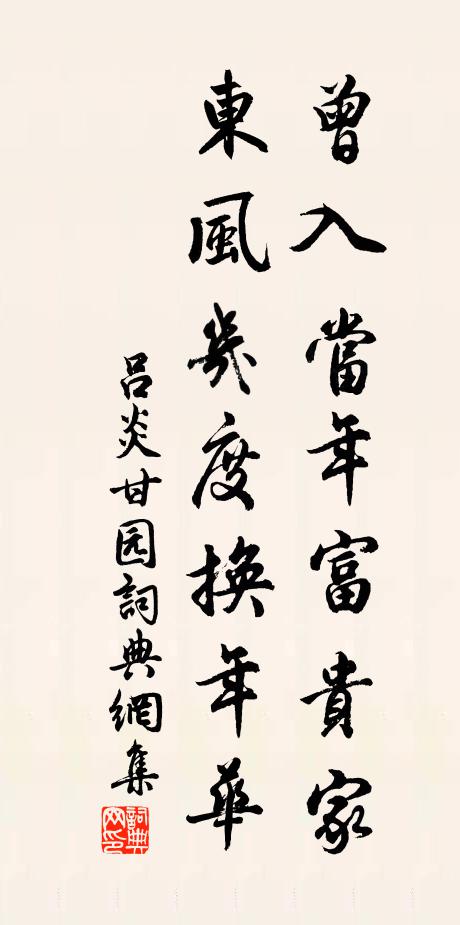 曾入當年富貴家
東風幾度換年華
吕炎甘园詞典網集
詞典
网印